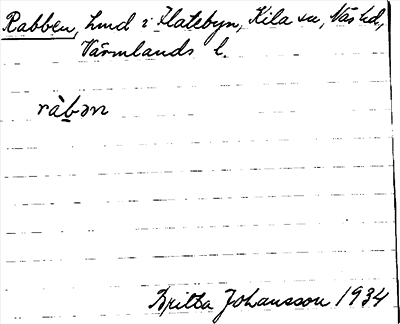 Rabben, hmd i Flatebyn, Kila sn, Näs hd,
Värmlands l.
ràbən
Britta Johansson 1934